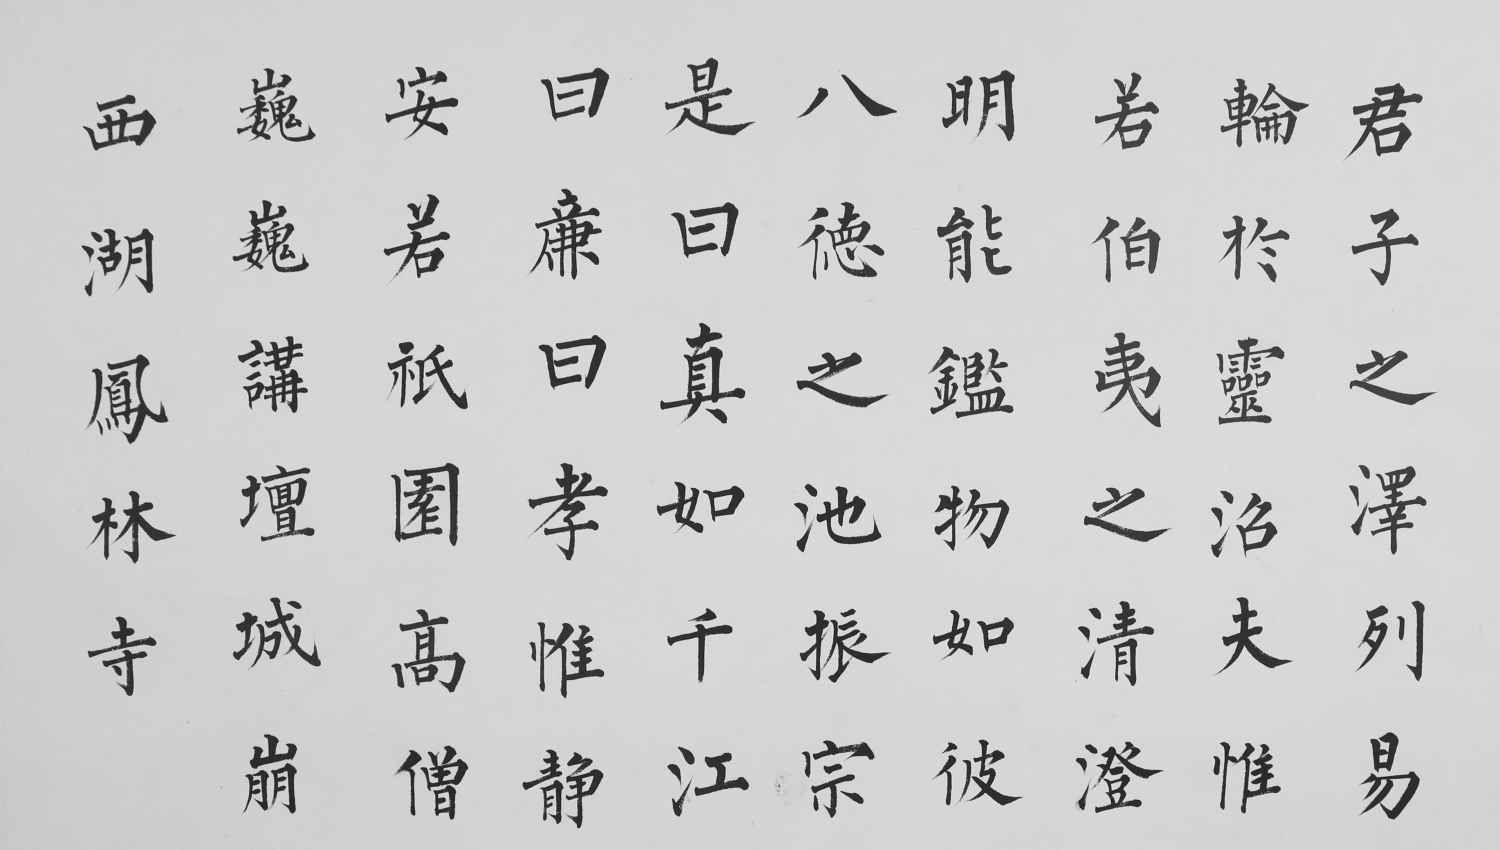 君子之澤列易
輪於靈沿夫惟
若伯夷之清澄
明能鑑物如彼
八德之池振宗
是曰真如千江
曰廉曰孝惟静
安若祇園高僧
巍巍講壇城崩
西湖鳳林寺